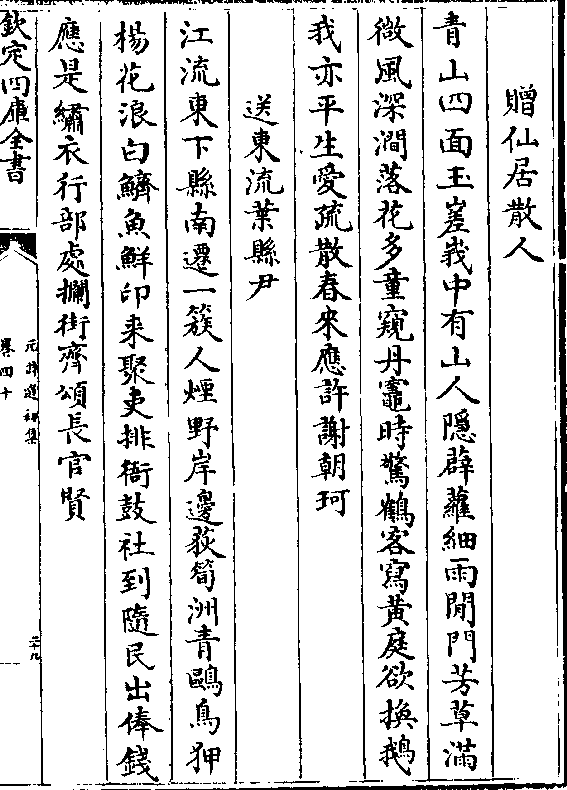 贈仙居散人
青山四面玉嵳峩中有山人隱薜蘿細雨閒門芳草滿
微風深澗落花多童窺丹竈時驚鶴客寫黃庭欲換鵝
我亦平生愛疏散春來應許謝朝珂
送東流葉縣尹
江流東下縣南遷一簇人煙野岸邊荻筍洲青鷗鳥狎
楊花浪白鱭魚鮮印來聚吏排衙鼓社到隨民出俸錢
應是繡衣行部處攔街齊頌長官賢
欽定四庫全書
元詩選初集
卷四十
二十九